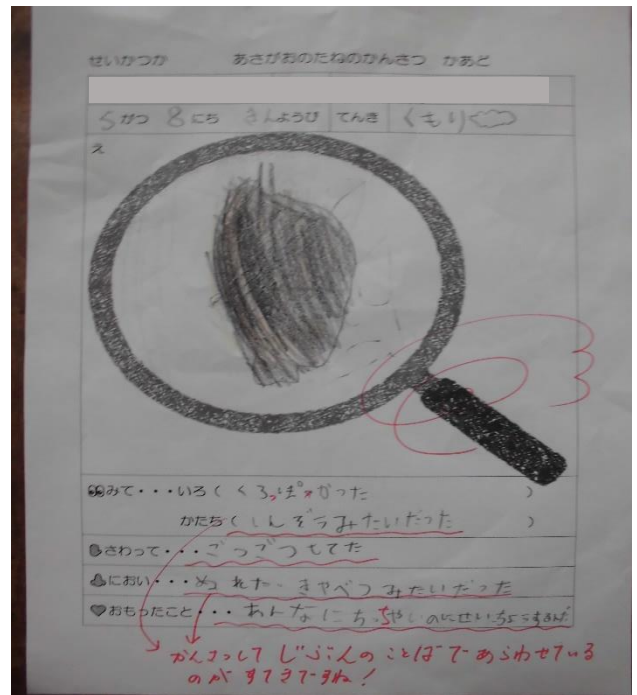 せいかつか あさがおのたねのかんさつ かあど
5がつ 8にち きんようび てんき くもり
え
みて・・・いろ( くろっぽかった )
かたち( しんぞうみたいだった )
さわって・・・ごつごつしてた
におい・・・ぬれた きゃべつみたいだった
おもったこと・・・あんなにちっちゃいのにせいちょうするんだ
かんさつして じぶんのことばであらわせている
のが すてきですね!